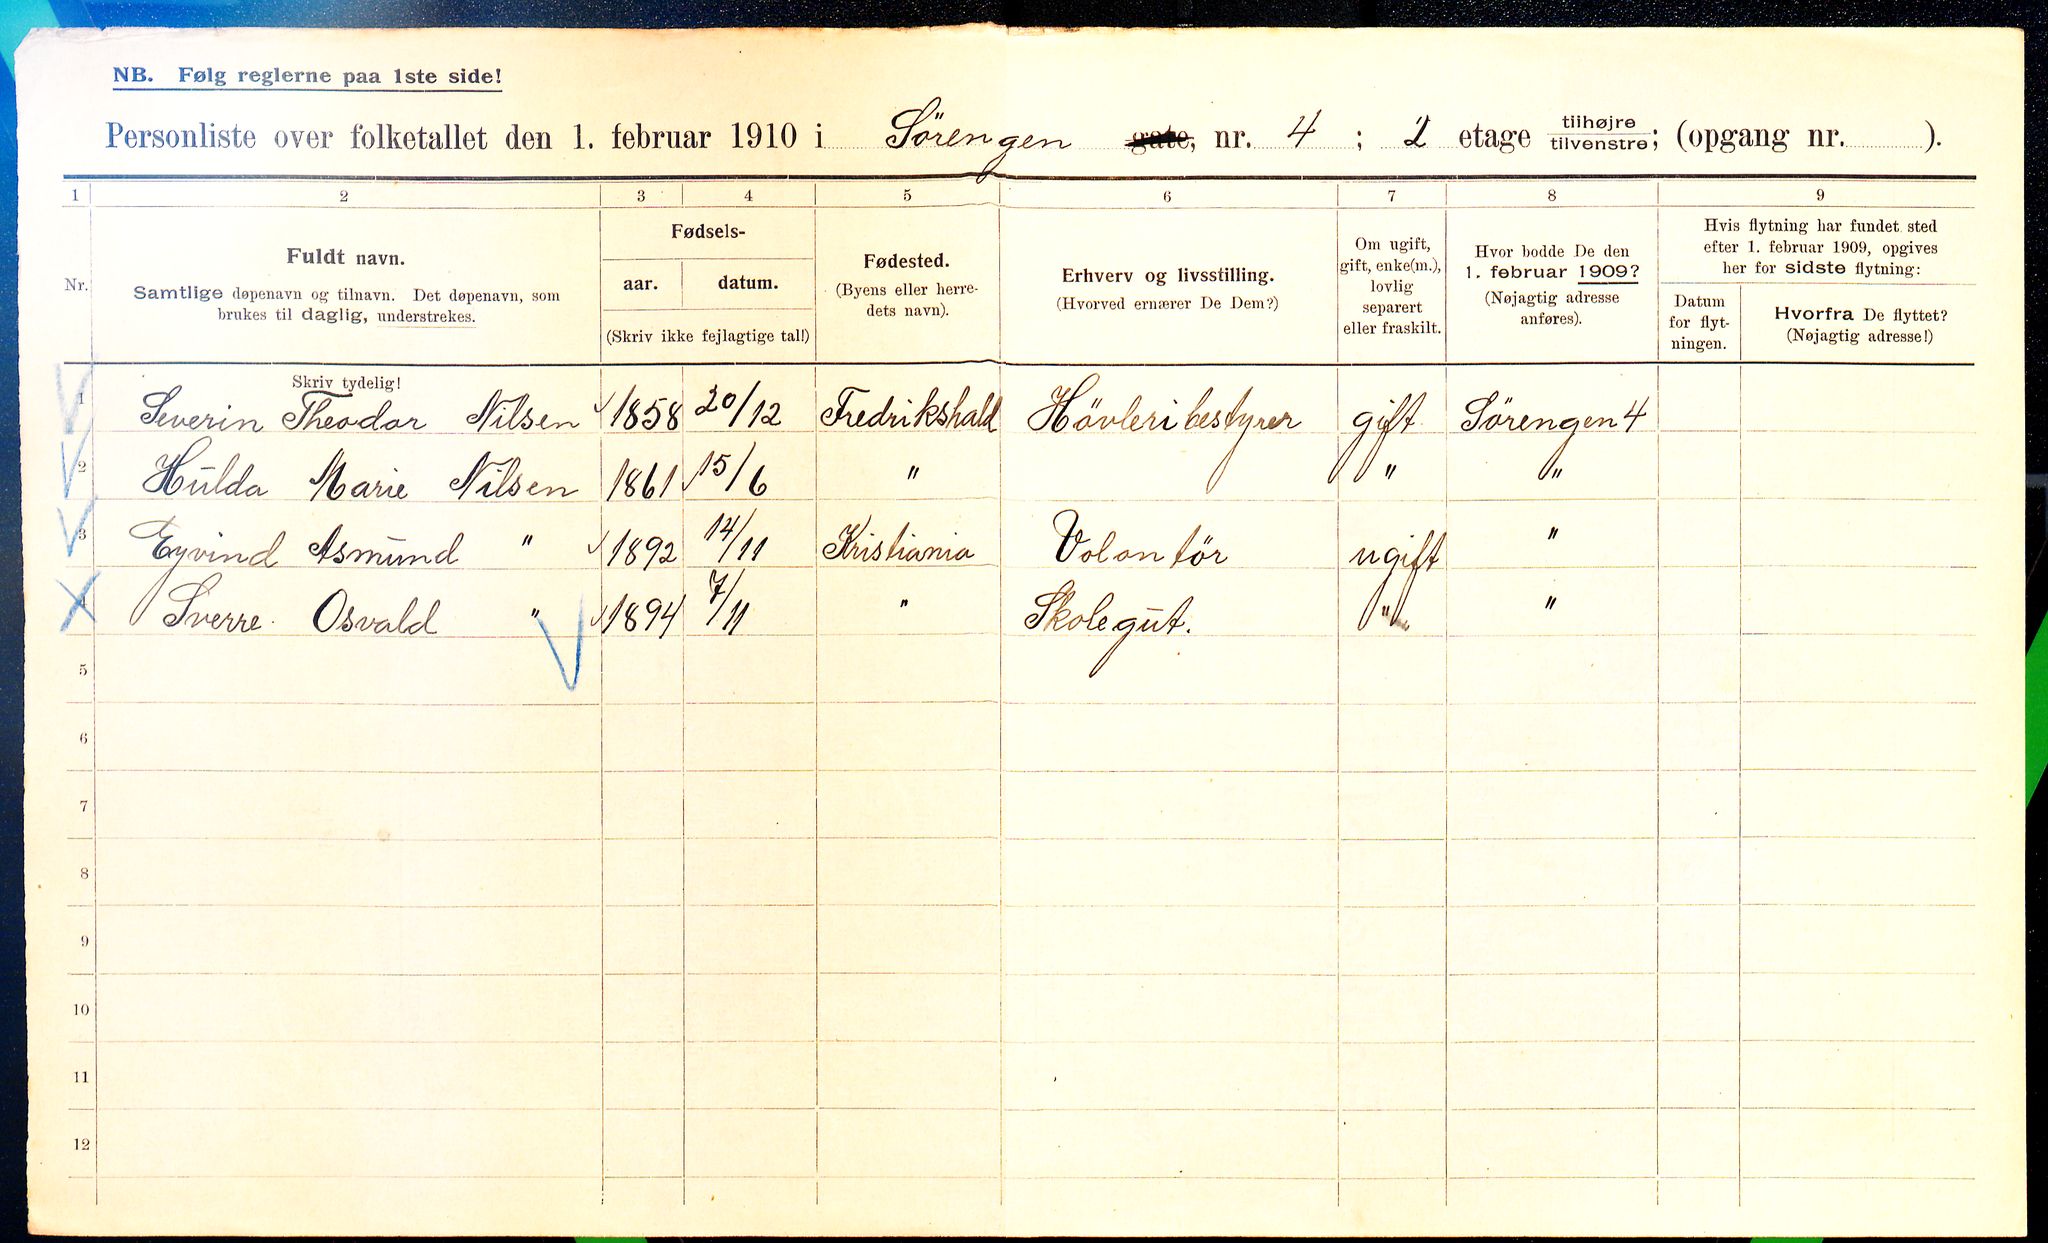 NB. Følg reglerne paa 1ste side!
Personliste over folketallet den 1. februar 1910 i Sörengen gate, nr. 4 ; 2 etage tilhøjre tilvenstre; (opgang nr. ).
1 2 3 4 5 6 7 8 9
Nr.
Fuldt navn.
Samtlige døpenavn og tilnavn. Det døpenavn, som
brukes til daglig, understrekes.
Fødsels-
aar. datum.
(Skriv ikke fejlagtige tal!)
Fødested.
(Byens eller herre-
dets navn).
Erhverv og livsstilling.
(Hvorved ernærer De Dem?)
Om ugift,
gift, enke(m.),
lovlig
separert
eller fraskilt.
Hvor bodde De den
1. februar 1909?
(Nøjagtig adresse
anføres).
Hvis flytning har fundet sted
efter 1. februar 1909, opgives
her for sidste flytning:
Datum
for flyt-
ningen.
Hvorfra De flyttet?
(Nøjagtig adresse!)
Skriv tydelig!
1 Severin Theodor Nilsen 1858 20/12 Fredrikshald Hövleribestyrer gift Sörengen 4
2 Hulda Marie Nilsen 1861 15/6 " " "
3 Eyvind Asmund " 1892 14/11 Kristiania Volontör ugift "
4 Sverre Osvald " 1894 7/11 " Skolegut. " "
5
6
7
8
9
10
11
12